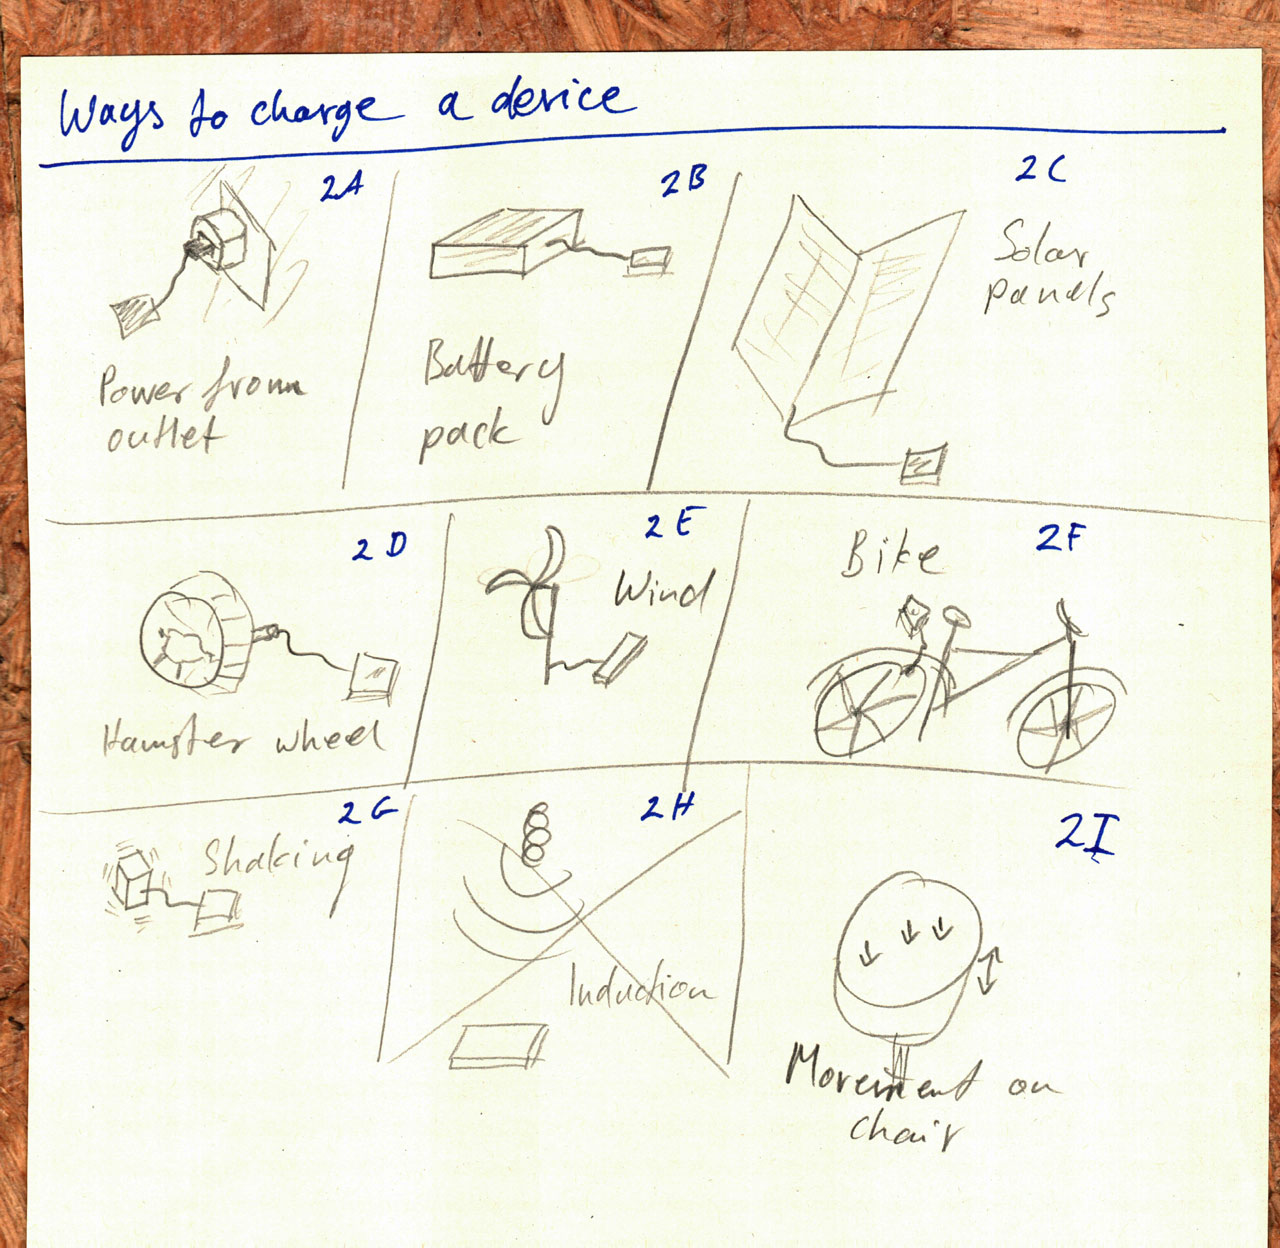 Ways to charge a device
2A
Power from
outlet
2B
Battery
pack
2C
Solar
panels
2D
Hamster wheel
2E
Wind
2F
Bike
2G
Shaking
2H
Induction
2I
Movement on
chair